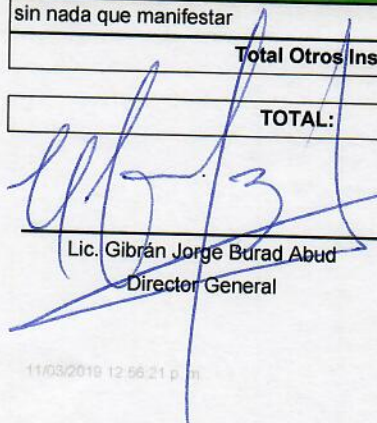 sin nada que manifestar
Total Otros Ins
TOTAL:
Lic. Gibrán Jorge Burad Abud
Director General
11/03/2019 12:56:21 p.m.